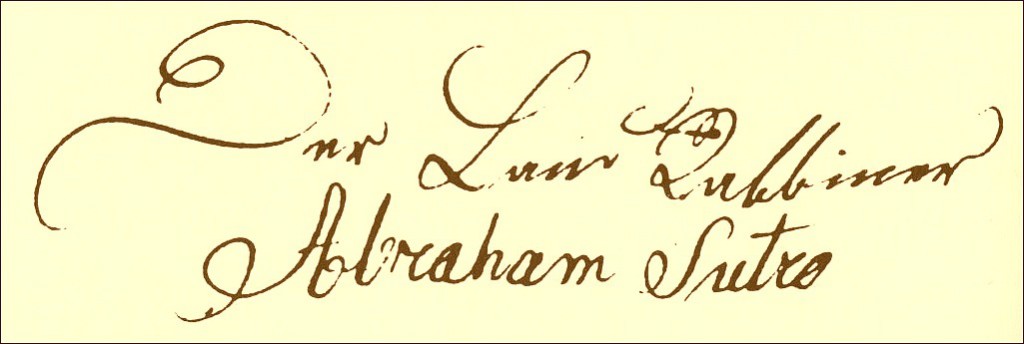 Der Land Rabbiner
Abraham Sutro